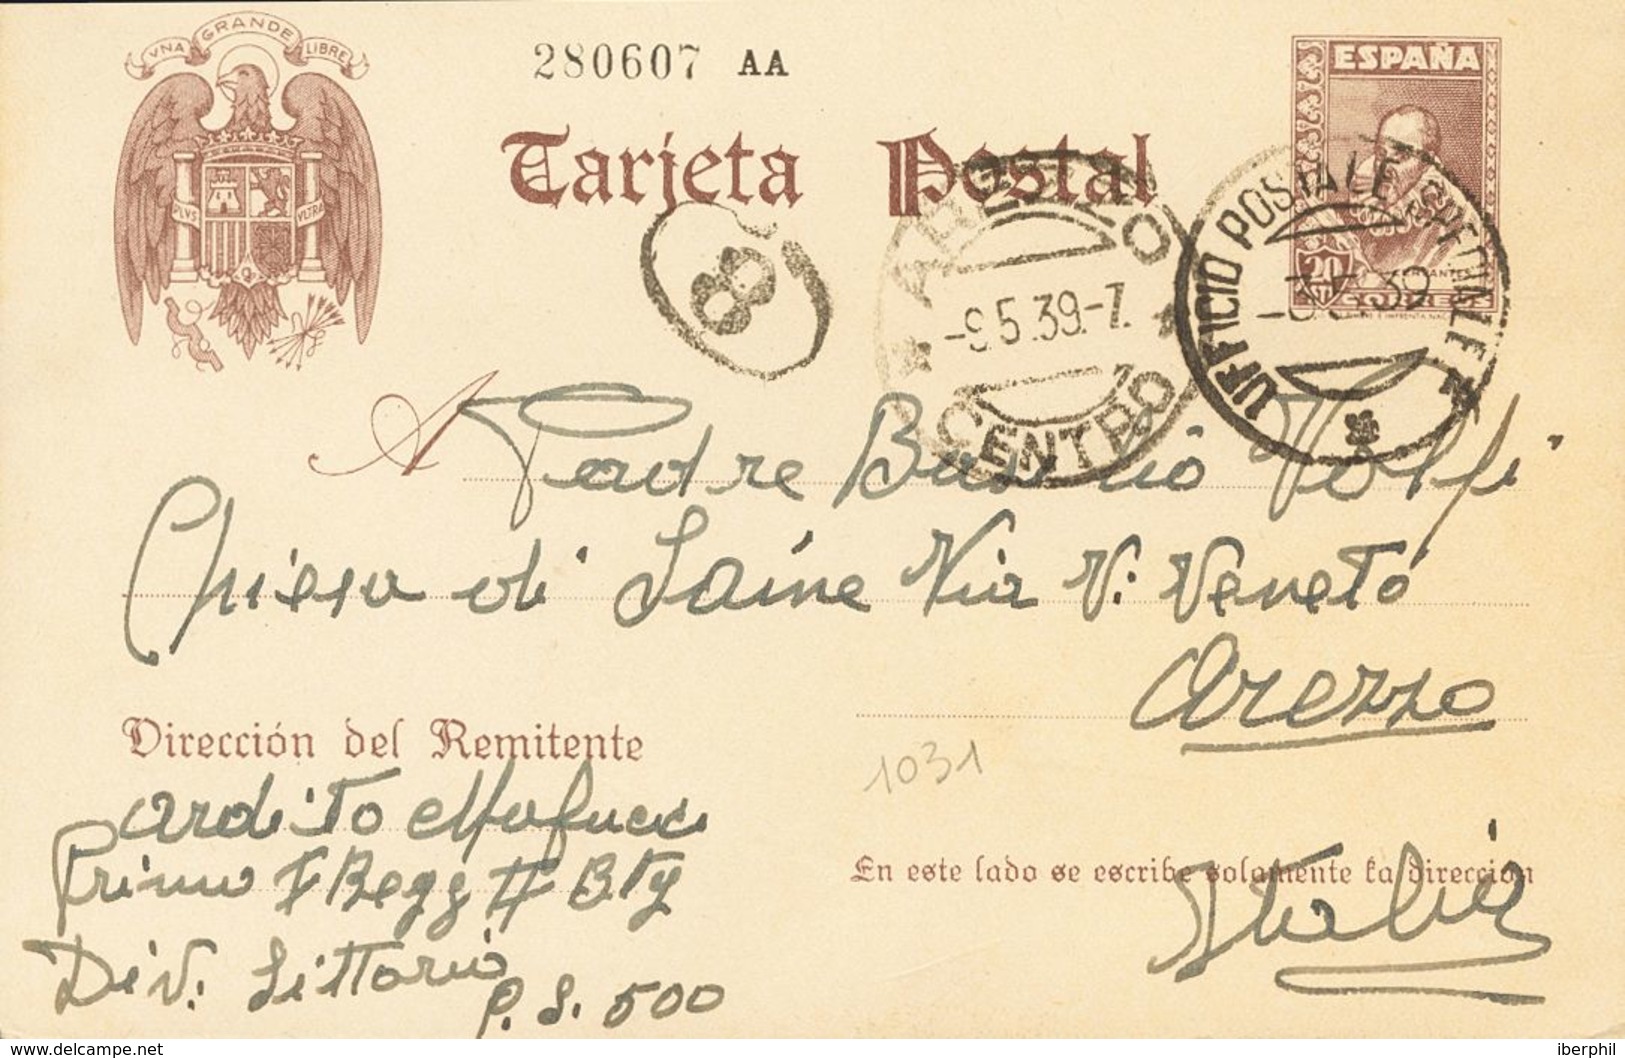 VNA GRANDE LIBRE
280607 AA
ESPAÑA
Tarjeta Postal
PLVS VLTRA
20
CERVANTES
CORREOS
8
AREZZO
-9.5.39.-7.
CENTRO
UFFICIO POSTALE SPECIALE N
39
A Padre Basilio Volpi
Chiesa di Saine Via V. Veneto
Arezzo
Dirección del Remitente
1031
Ardito
En este lado se escribe solamente la dirección
Primo Regg Btg
Italia
Div. Littorio
P.S. 500
delcampe.net
iberphil